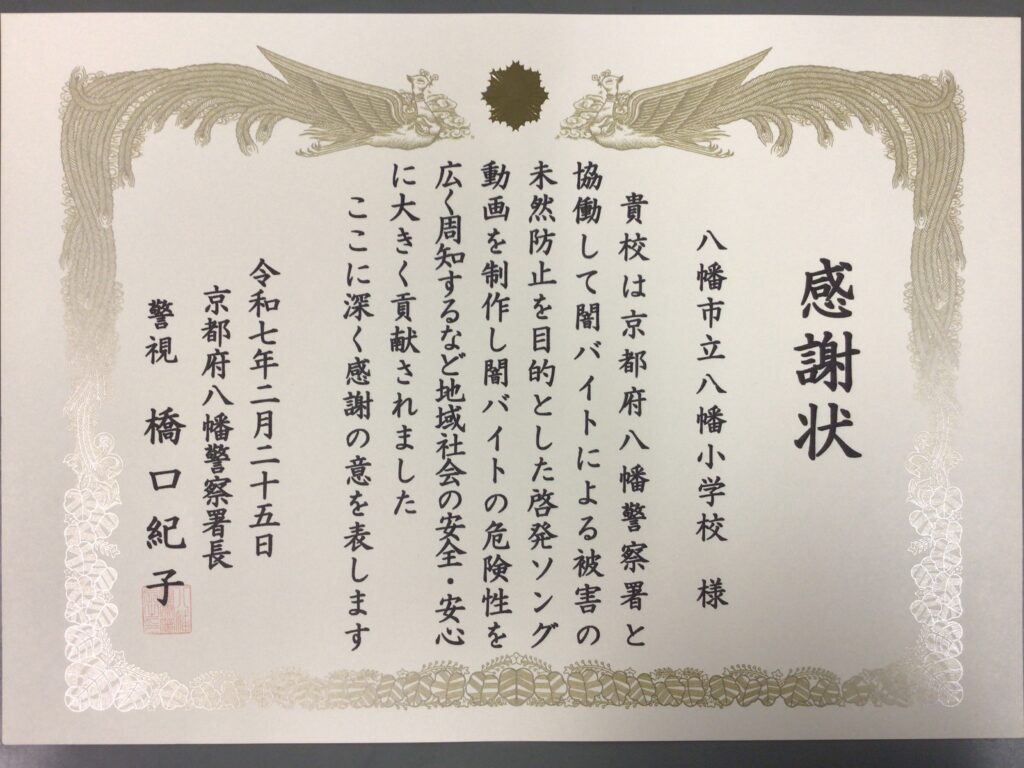 感謝状
八幡市立八幡小学校 様
貴校は京都府八幡警察署と
協働して闇バイトによる被害の
未然防止を目的とした啓発ソング
動画を制作し闇バイトの危険性を
広く周知するなど地域社会の安全・安心
に大きく貢献されました
ここに深く感謝の意を表します
令和七年二月二十五日
京都府八幡警察署長
警視 橋口紀子